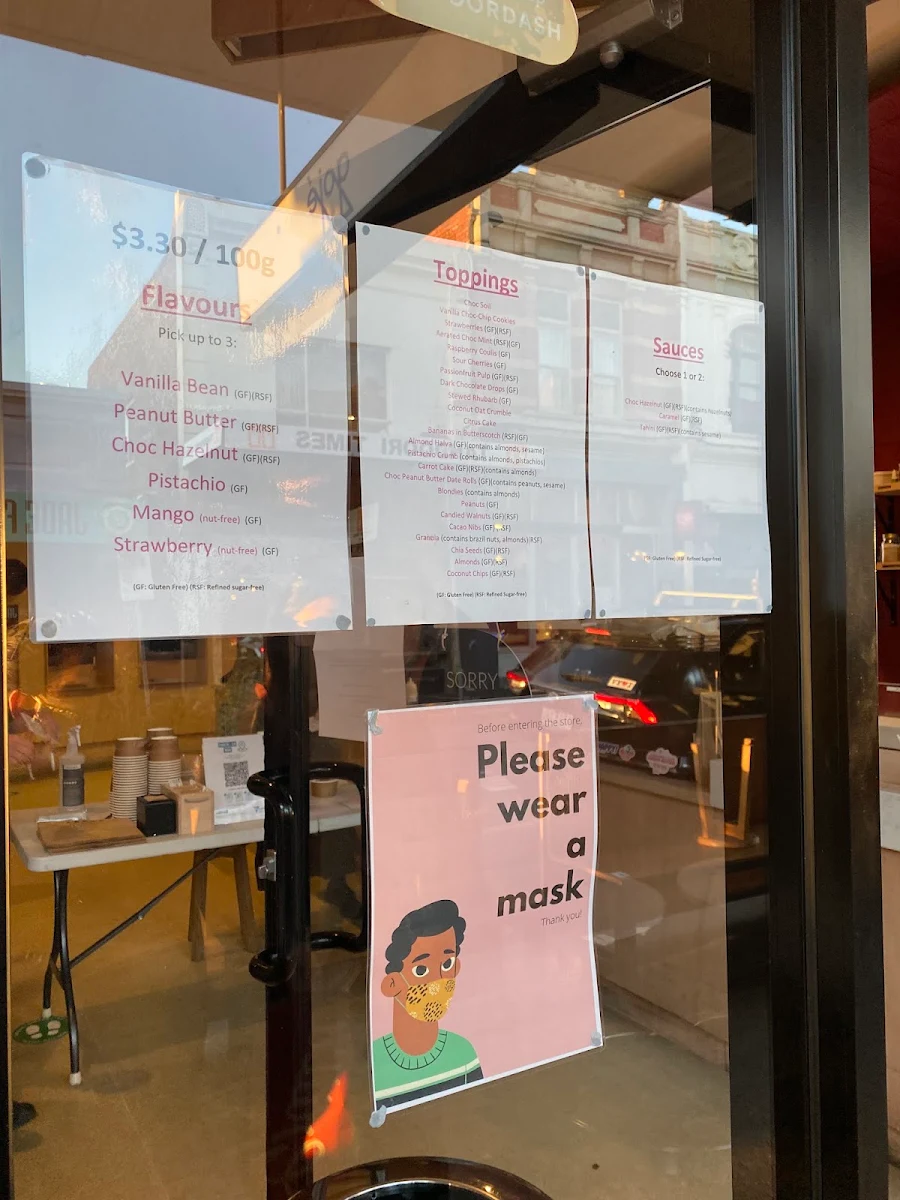 DOORDASH
gojé
$3.30 / 100g
Flavours
Pick up to 3:
Vanilla Bean (GF)(RSF)
Peanut Butter (GF)(RSF)
Choc Hazelnut (GF)(RSF)
Pistachio (GF)
Mango (nut-free) (GF)
Strawberry (nut-free) (GF)
(GF: Gluten Free) (RSF: Refined sugar-free)
Toppings
Choc Soil
Vanilla Choc-Chip Cookies
Strawberries (GF)(RSF)
Aerated Choc Mint (RSF)(GF)
Raspberry Coulis (GF)
Sour Cherries (GF)
Passionfruit Pulp (GF)(RSF)
Dark Chocolate Drops (GF)
Stewed Rhubarb (GF)
Coconut Oat Crumble
Citrus Cake
Bananas in Butterscotch (RSF)(GF)
Almond Halva (GF)(contains almonds, sesame)
Pistachio Crumb (contains almonds, pistachios)
Carrot Cake (GF)(RSF)(contains almonds)
Choc Peanut Butter Date Rolls (GF)(contains peanuts, sesame)
Blondies (contains almonds)
Peanuts (GF)
Candied Walnuts (GF)(RSF)
Cacao Nibs (GF)(RSF)
Granola (contains brazil nuts, almonds)(RSF)
Chia Seeds (GF)(RSF)
Almonds (GF)(RSF)
Coconut Chips (GF)(RSF)
(GF: Gluten Free) (RSF: Refined Sugar-free)
Sauces
Choose 1 or 2:
Choc Hazelnut (GF)(RSF)(contains hazelnuts)
Caramel (GF)
Tahini (GF)(RSF)(contains sesame)
(GF: Gluten Free) (RSF: Refined Sugar-free)
TIMES
SORRY
Before entering the store,
Please
wear
a
mask
Thank you!